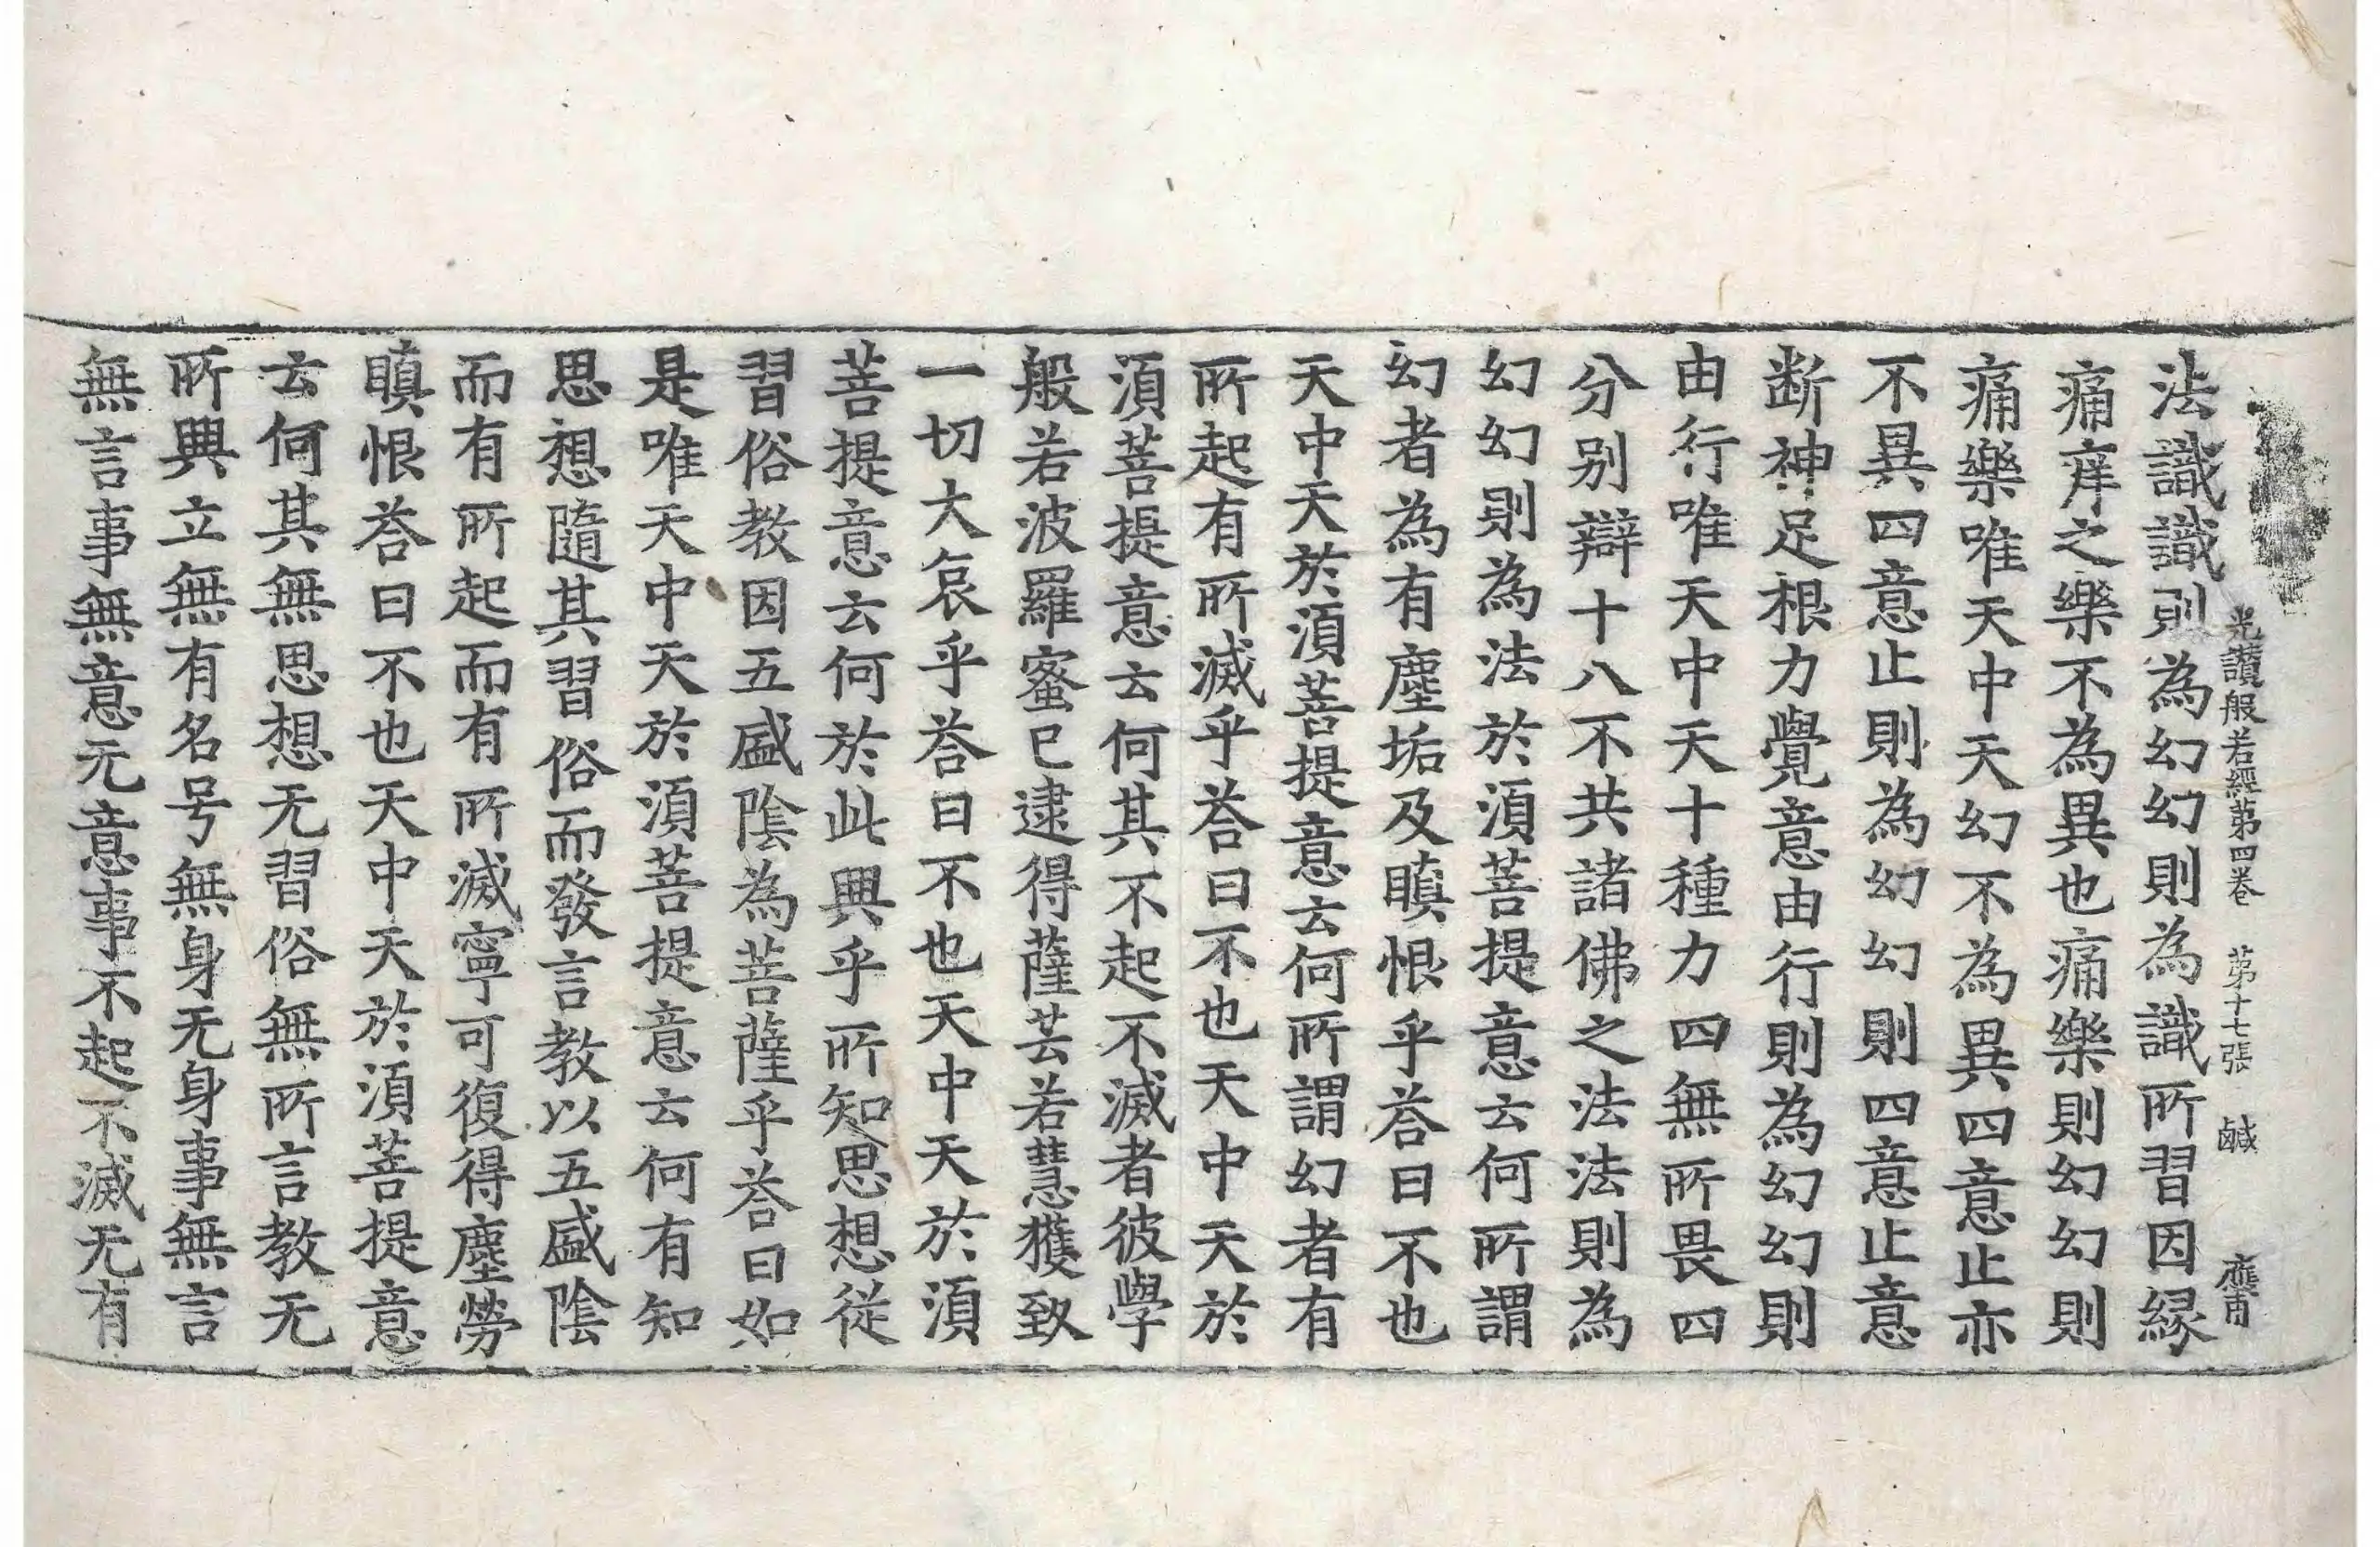 光讚般若經第四卷　第十七張　鹹
法識識則為幻幻則為識所習因緣
痛痒之樂不為異也痛樂則幻幻則
痛樂唯天中天幻不為異四意止亦
不異四意止則為幻幻則四意止意
断神足根力覺意由行則為幻幻則
由行唯天中天十種力四無所畏四
分别辯十八不共諸佛之法法則為
幻幻則為法於湏菩提意云何所謂
幻者為有塵垢及瞋恨乎荅曰不也
天中天於湏菩提意云何所謂幻者有
所起有所滅乎荅曰不也天中天於
湏菩提意云何其不起不滅者彼學
般若波羅蜜已逮得薩芸若慧獲致
一切大哀乎荅曰不也天中天於湏
菩提意云何於此興乎所知思想從
習俗教因五盛陰為菩薩乎荅曰如
是唯天中天於湏菩提意云何有知
思想隨其習俗而發言教以五盛陰
而有所起而有所滅寧可復得塵勞
瞋恨荅曰不也天中天於湏菩提意
云何其無思想无習俗無所言教无
所興立無有名号無身无身事無言
無言事無意无意事不起不滅无有